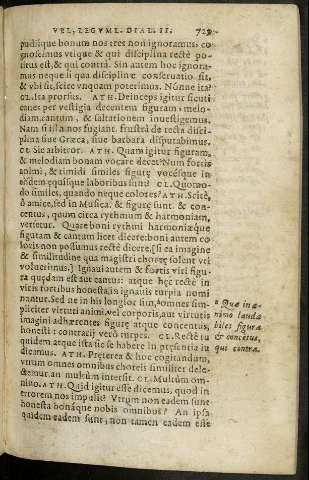 VEL, LEGVM. DIAL. II. 729
pudiſque bonum nos tres non ignoramus, co
gnoſcimus vtique & qui diſciplina rectè po-
titus eſt, & qui contrà. Sin autem hoc ignora-
mus neque ſi qua diſciplinæ conſeruatio ſit,
& vbi ſit, ſcire vnquam poterimus. Nónne ita?
CL. Ita prorſus. ATH. Deinceps igitur ſicuti
canes per veſtigia decenitem figuram, melo-
diam, cantum, & ſaltationem inueſtigemus.
Nam ſi iſta nos fugiant, fruſtrà de recta diſci
plina ſiue Græca, ſiue barbara diſputabimus.
CL. Sic arbitror. ATH. Quam igitur figuram,
& melodiam bonam vocare decet? Num fortis
animi, & timidi ſimiles figuræ vocéſque in
eiſdem æquiſque laboribus ſunt? CL. Quomo-
do ſimiles, quando neque colores? ATH. Scitè,
ô amice, ſed in Muſica, & figuræ ſunt, & con-
centus, quum circa rythmum & harmoniam,
verſetur. Quare boni rythmi harmoniæque
figuram & cantum licet dicere: boni autem co
loris non poſſumus rectè dicere, [ſi ea imagine
& ſimilitudine qua magiſtri choreę ſolent vti
voluerimus.] Ignaui autem & fortis viri figu-
ra quędam eſt aut cantus: atque hęc rectè in
viris fortibus honeſta, in ignauis turpia nomi
nantur. Sed ne in his longior ſim, omnes ſim-
pliciter virtuti animi, vel corporis, aut virtutis
imagini adhærentes figuræ atque concentus,
honeſti: contrarij verò turpes. CL. Rectè tu
quidem atque iſta ſic ſe habere in pręſentia iu
dicamus. ATH. Pręterea & hoc cogitandum,
vtrum omnes omnibus choreis ſimiliter dele-
ctemur, an multùm interſit. CL. Multùm om-
nino. ATH. Quid igitur eſſe dicemus, quod in
errorem nos impulit? Vtrum non eadem ſunt
honeſta bonáque nobis omnibus? An ipſa
quidem eadem ſunt, non tamen eadem eſſe
Quæ in a-
nimo lauda
biles figuræ
& concẽtus,
qui contra.